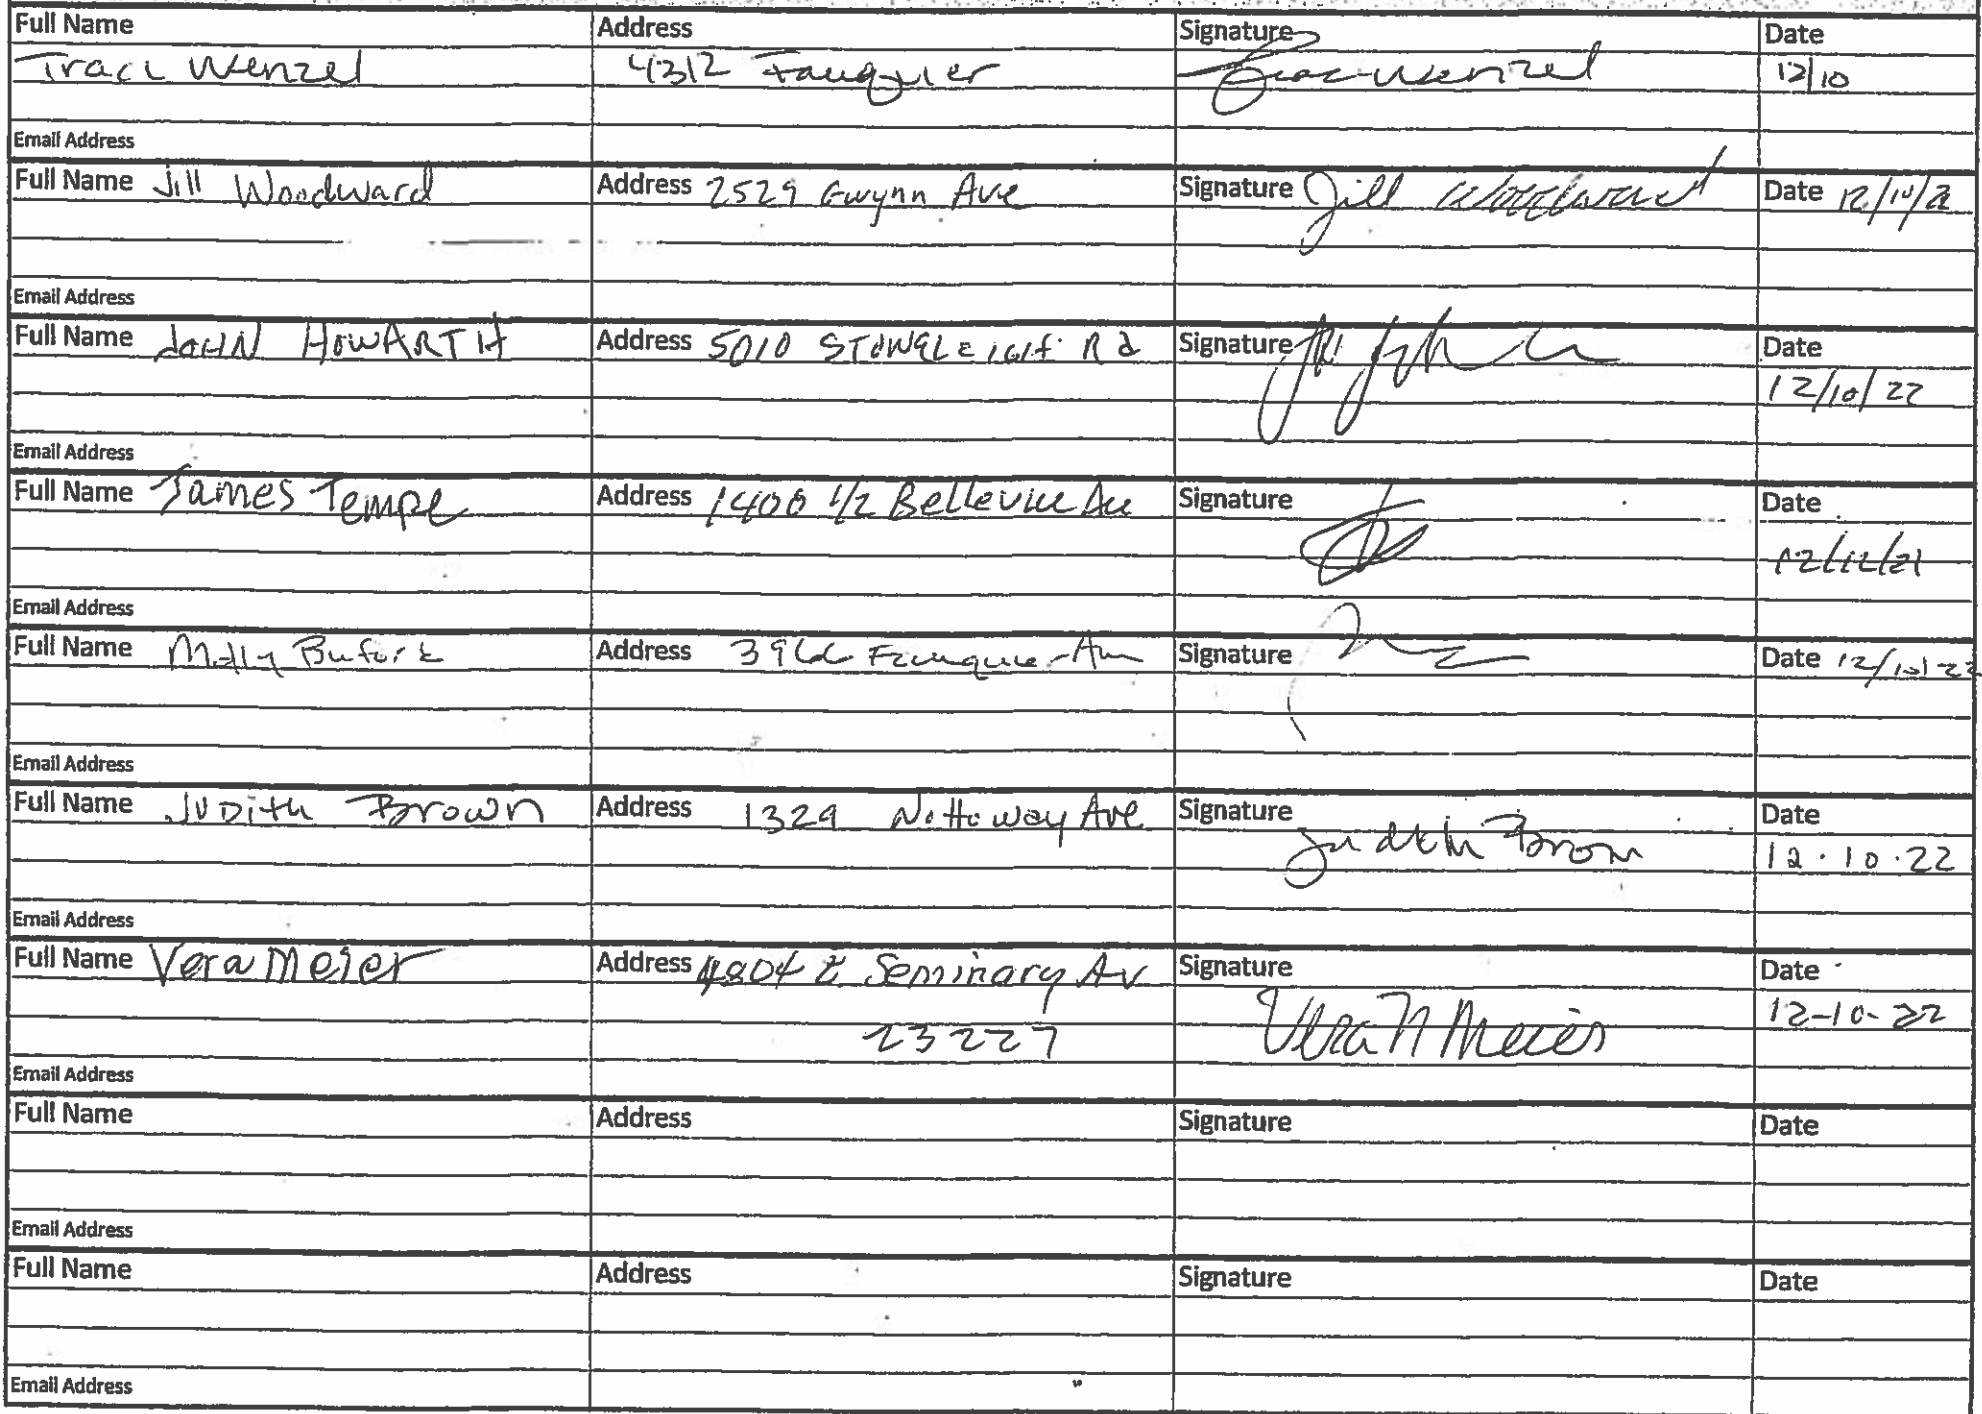 Full Name Address Signature Date
Traci Wenzel 4312 Fauquier Traci Wenzel 12/10
Email Address
Full Name Jill Woodward Address 2529 Gwynn Ave Signature Jill Woodward Date 12/10/2
Email Address
Full Name JOHN HOWARTH Address 5010 Rd Signature Date
12/10/22
Email Address
Full Name James Tempe Address 1400 1/2 Bellevue Ave Signature Date
12/12/21
Email Address
Full Name Molly Buford Address Signature Date 12/10/22
Email Address
Full Name Judith Brown Address 1329 Nottoway Ave Signature Date
Judith Brown 12.10.22
Email Address
Full Name Vera Meier Address 4804 Seminary Av Signature Date
23227 Vera N Meier 12-10-22
Email Address
Full Name Address Signature Date
Email Address
Full Name Address Signature Date
Email Address